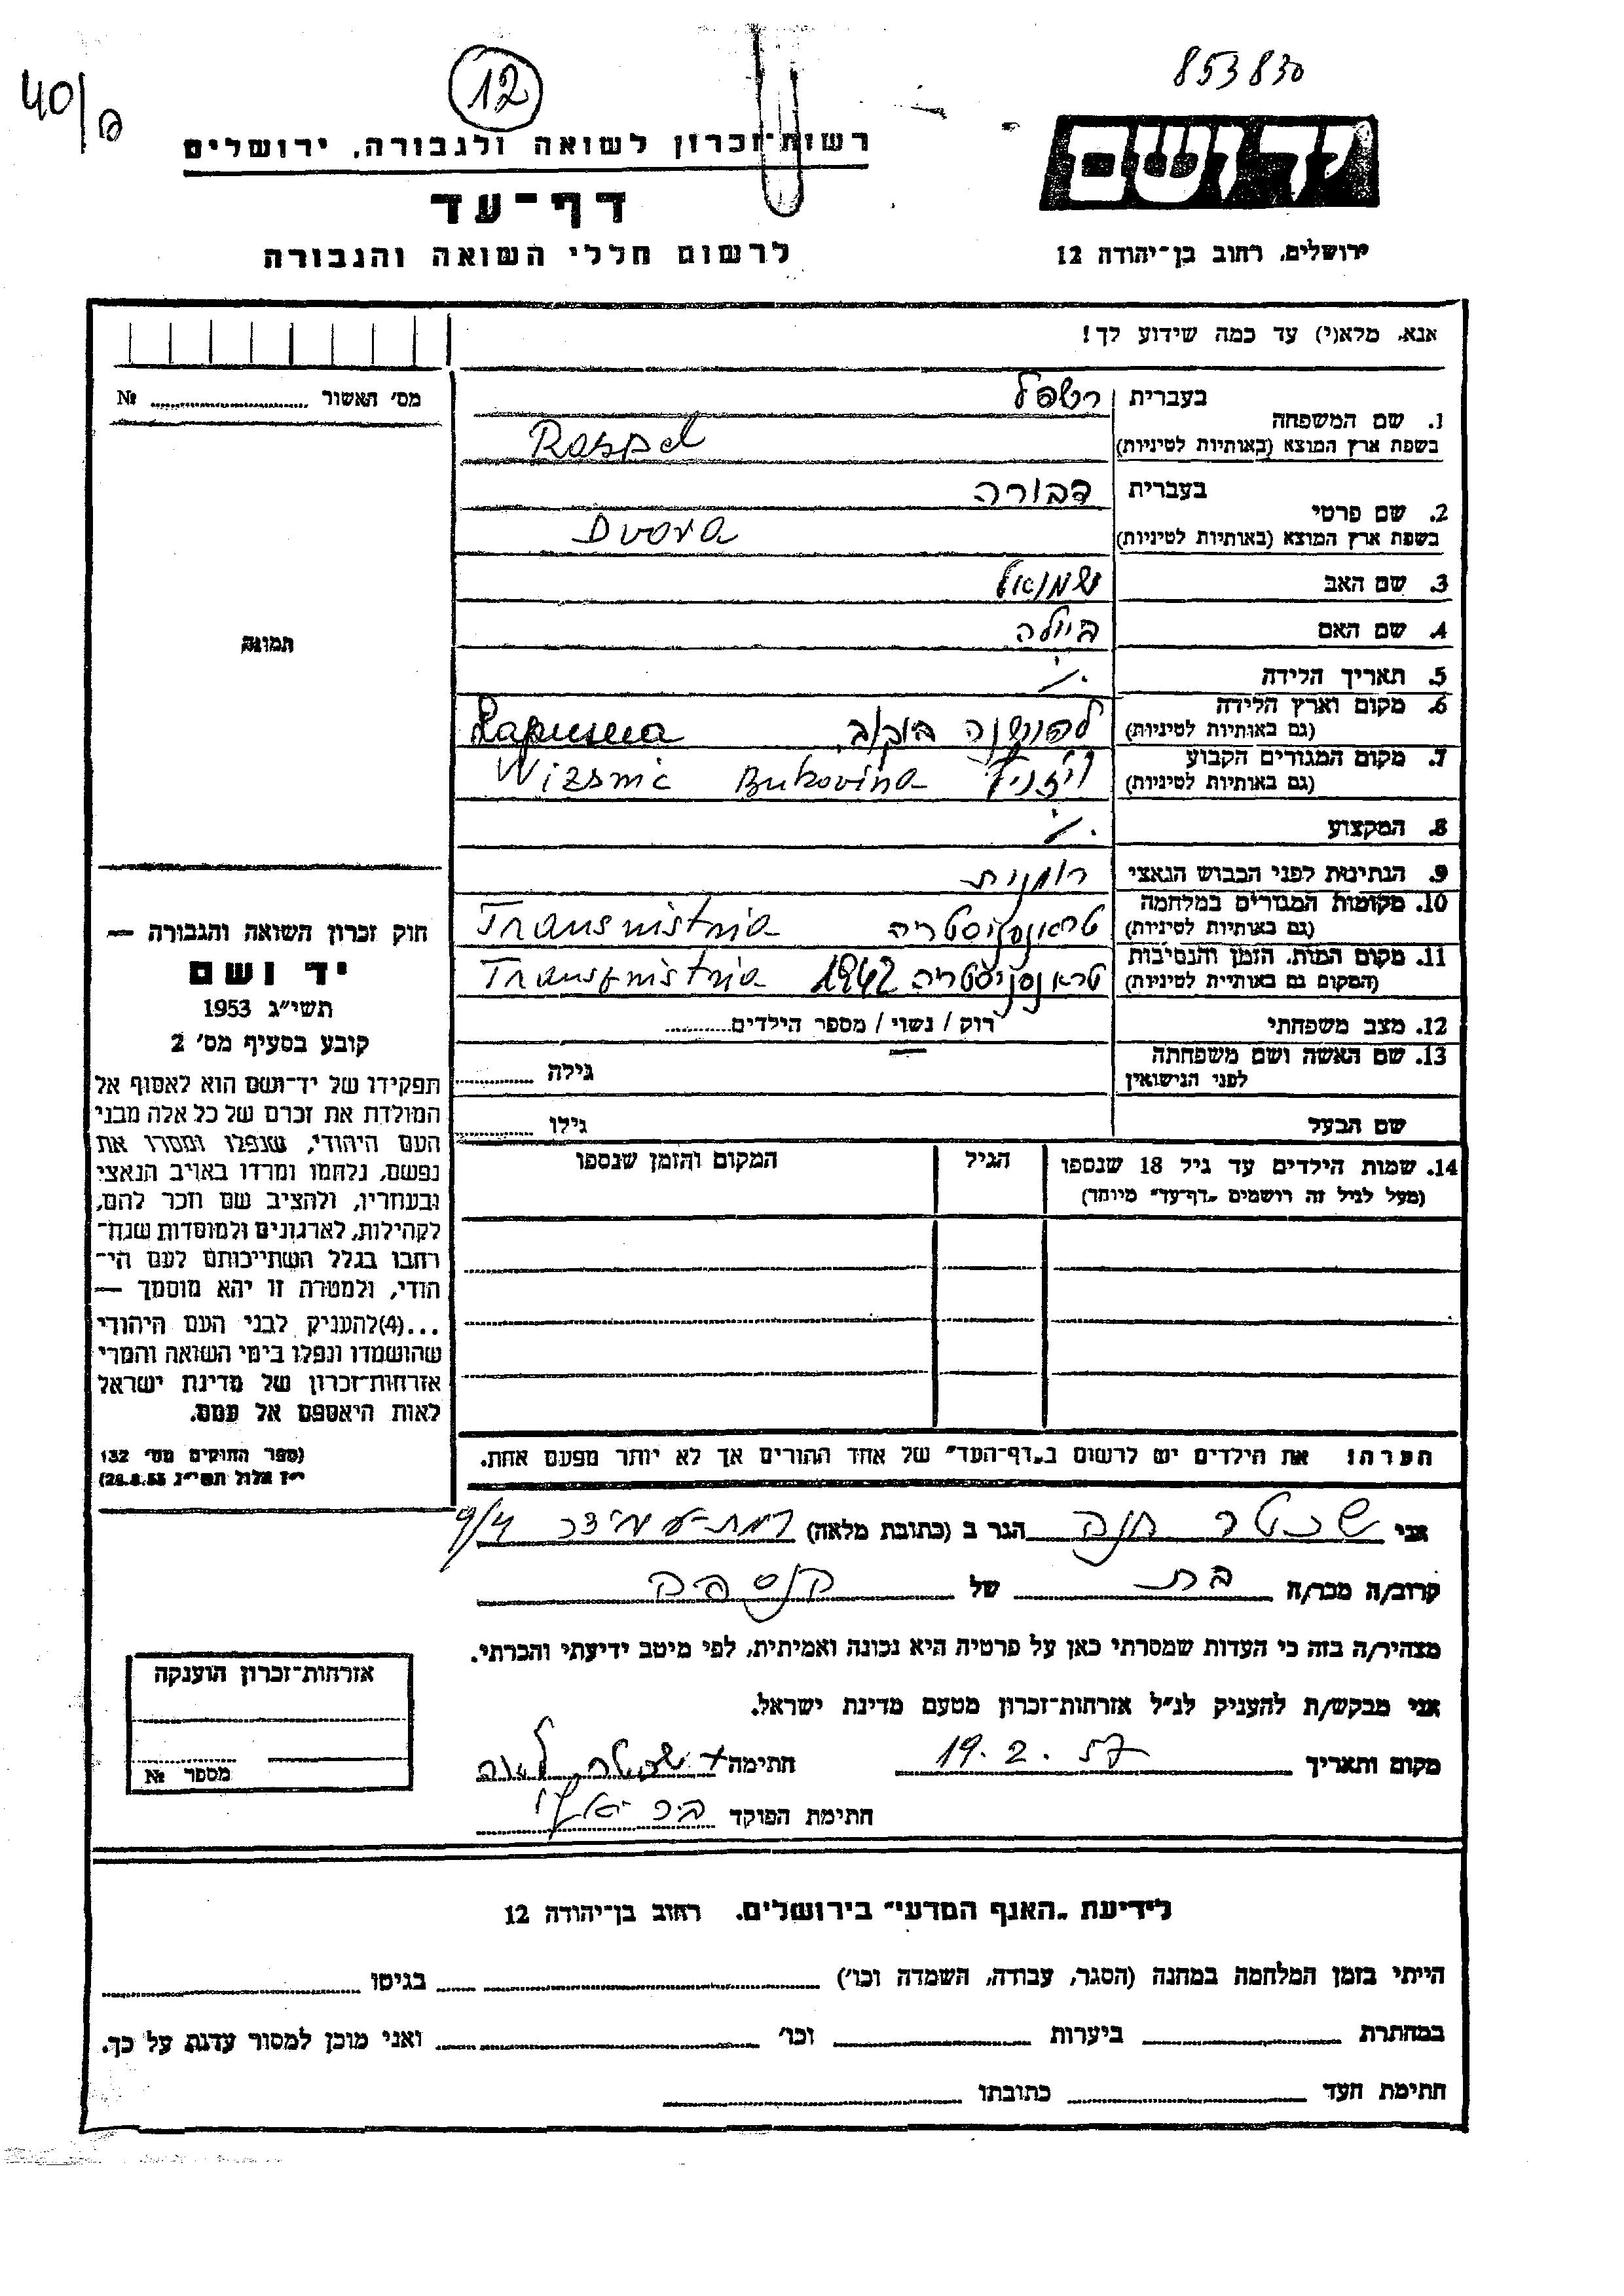 853830
12
40/a
יד ושם
רשות-זכרון לשואה ולגבורה, ירושלים
דף-עד
לרשום חללי השואה והגבורה
ירושלים, רחוב בן-יהודה 12
אנא, מלא(י) עד כמה שידוע לך!
מס' האשור № 
1. שם המשפחה בעברית רשפל
בשפת ארץ המוצא (באותיות לטיניות) Raspel
2. שם פרטי בעברית דבורה
בשפת ארץ המוצא (באותיות לטיניות) Dvora
3. שם האב שמואל
4. שם האם ביילה
5. תאריך הלידה ./.
6. מקום וארץ הלידה (גם באותיות לטיניות) לפושנה בוקוב. Lapusna
7. מקום המגורים הקבוע (גם באותיות לטיניות) ויזניץ Bukovina Wizsnic
8. המקצוע ./.
9. הנתינות לפני הכבוש הנאצי רומנית
10. מקומות המגורים במלחמה (גם באותיות לטיניות) טראנסניסטריה Transnistria
11. מקום המות, הזמן והנסיבות (המקום גם באותיות לטיניות) טראנסניסטריה 1942 Transnistria
12. מצב משפחתי רווק / נשוי / מספר הילדים
13. שם האשה ושם משפחתה לפני הנישואין גילה
שם הבעל גילו
14. שמות הילדים עד גיל 18 שנספו הגיל המקום והזמן שנספו
(מעל לגיל זה רושמים "דף-עד" מיוחד)
הערה: את הילדים יש לרשום ב"דף-העד" של אחד ההורים אך לא יותר מפעם אחת.
תמונה
חוק זכרון השואה והגבורה —
יד ושם
תשי"ג 1953
קובע בסעיף מס' 2
תפקידו של יד-ושם הוא לאסוף אל
המולדת את זכרם של כל אלה מבני
העם היהודי, שנפלו ומסרו את
נפשם, נלחמו ומרדו באויב הנאצי
ובעוזריו, ולהציב שם וזכר להם,
לקהילות, לארגונים ולמוסדות שנח-
רבו בגלל השתייכותם לעם הי-
הודי, ולמטרה זו יהא מוסמך —
...(4)להעניק לבני העם היהודי
שהושמדו ונפלו בימי השואה והמרי
אזרחות-זכרון של מדינת ישראל
לאות היאספם אל עמם.
(ספר החוקים מס' 132
י"ז אלול תשי"ג 28.8.53)
אני שכטר חנה הגר ב (כתובת מלאה) רמת-עמידר 9/4
קרוב/ה מכר/ה בת של
מצהיר/ה בזה כי העדות שמסרתי כאן על פרטיה היא נכונה ואמיתית, לפי מיטב ידיעתי והכרתי.
אני מבקש/ת להעניק לנ"ל אזרחות-זכרון מטעם מדינת ישראל.
מקום ותאריך 19.2.57 חתימה
חתימת הפוקד
אזרחות-זכרון הוענקה
מספר №
לידיעת "האגף המדעי" בירושלים, רחוב בן-יהודה 12
הייתי בזמן המלחמה במחנה (הסגר, עבודה, השמדה וכו') בגיטו
במחתרת ביערות וכו' ואני מוכן למסור עדות על כך.
חתימת העד כתובתו